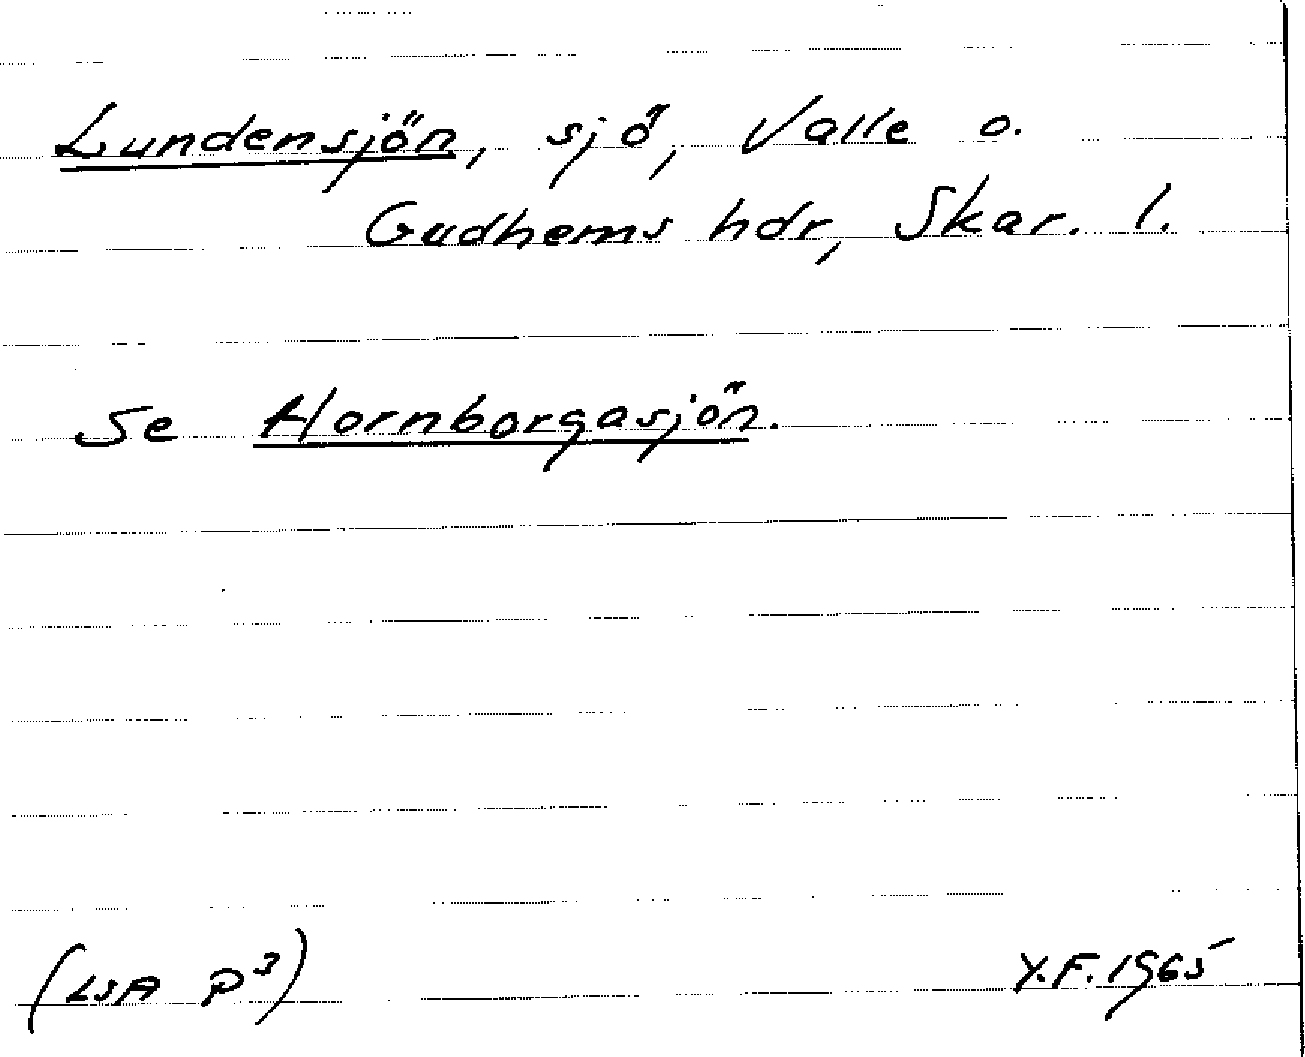 Lundensjön, sjö, Valle o.
Gudhems hdr, Skar. l.
Se Hornborgasjön.
(LSA P³)
Y.F. 1965